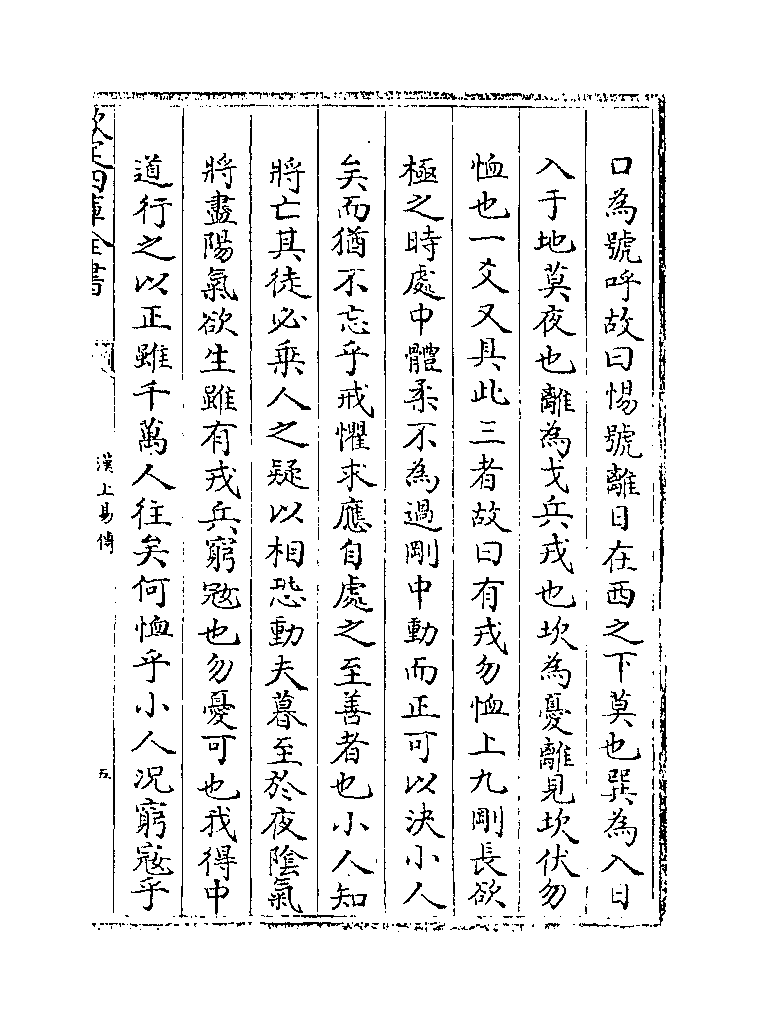 口為號呼故曰惕號離日在西之下莫也巽為入日
入于地莫夜也離為戈兵戎也坎為憂離見坎伏勿
恤也一爻又具此三者故曰有戎勿恤上九剛長欲
極之時處中體柔不為過剛中動而正可以決小人
矣而猶不忘乎戒懼求應自處之至善者也小人知
將亡其徒必乗人之疑以相恐動夫暮至於夜陰氣
將盡陽氣欲生雖有戎兵窮寇也勿憂可也我得中
道行之以正雖千萬人往矣何恤乎小人況窮寇乎
欽定四庫全書
漢上易傳
五